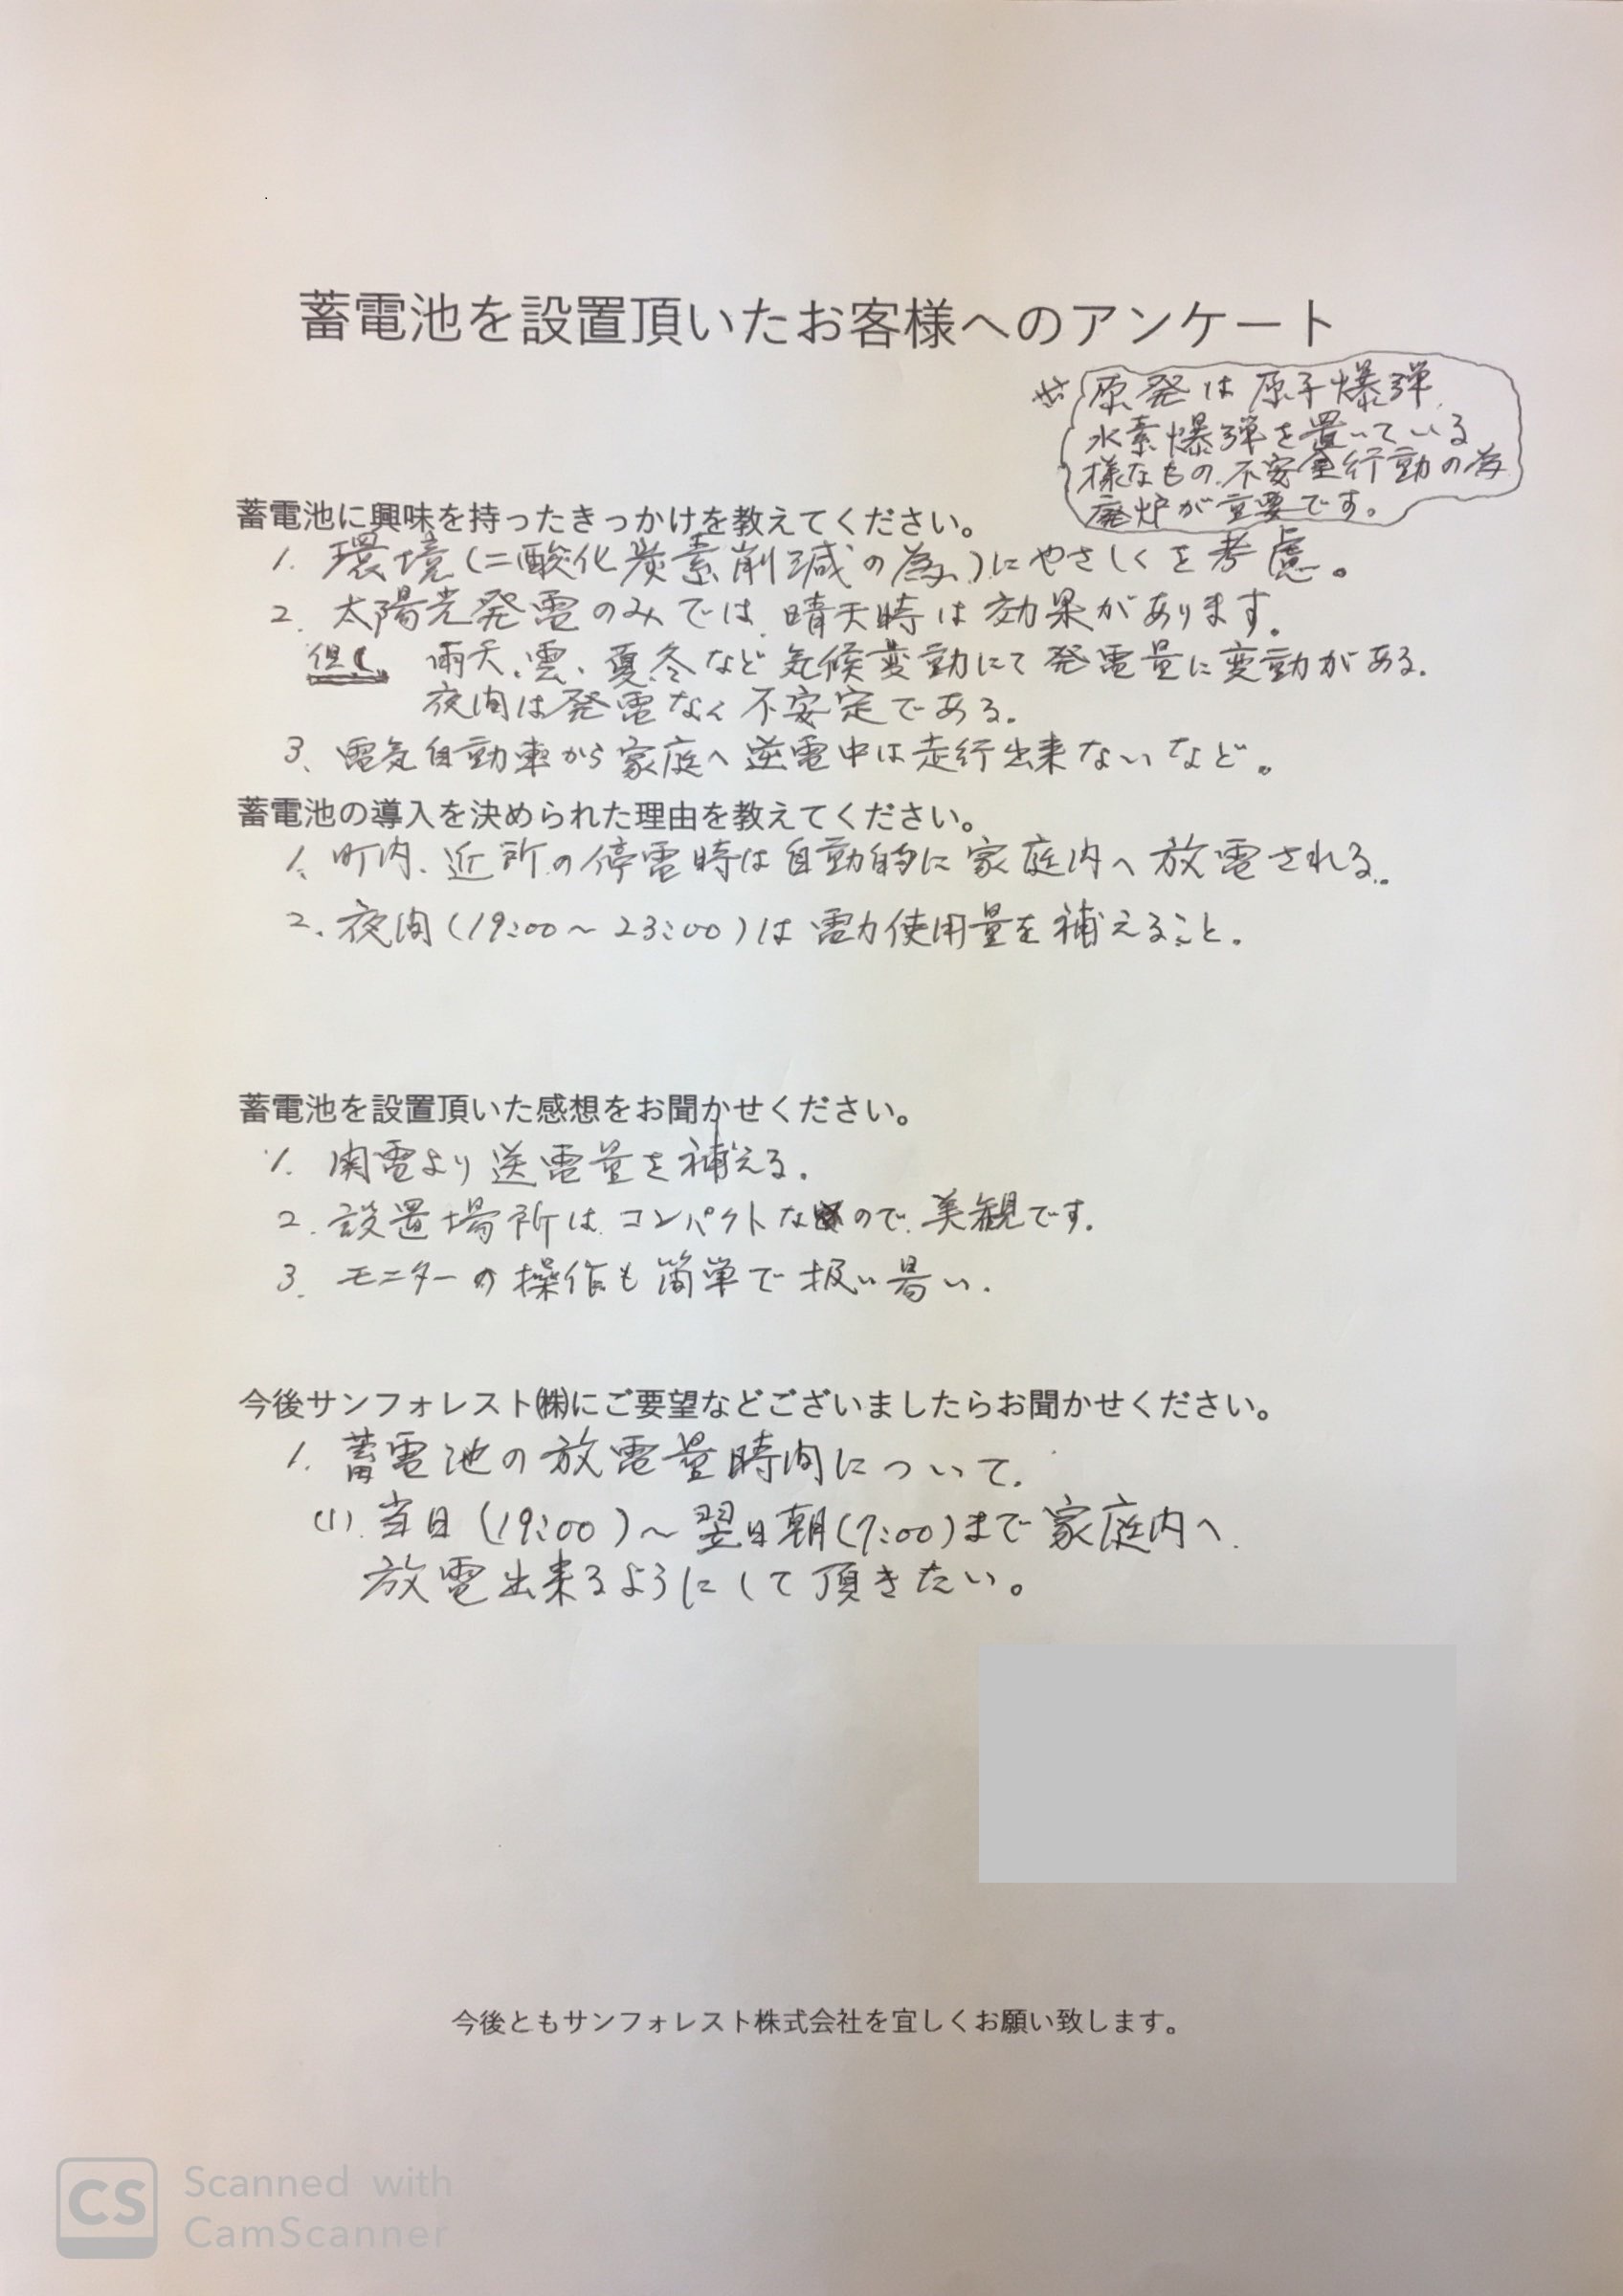 蓄電池を設置頂いたお客様へのアンケート
※ 原発は原子爆弾、
水素爆弾を置いている
様なもの、不安全行動の為
廃炉が重要です。
蓄電池に興味を持ったきっかけを教えてください。
1. 環境(二酸化炭素削減の為)にやさしくを考慮。
2. 太陽光発電のみでは、晴天時は効果があります。
但し 雨天、雲、夏冬など気候変動にて発電量に変動がある。
夜間は発電なく不安定である。
3、電気自動車から家庭へ逆電中は走行出来ないなど。
蓄電池の導入を決められた理由を教えてください。
1、町内、近所の停電時は自動的に家庭内へ放電される。
2. 夜間(19:00～23:00)は電力使用量を補えること。
蓄電池を設置頂いた感想をお聞かせください。
1. 関電より送電量を補える。
2. 設置場所は、コンパクトなので、美観です。
3. モニターの操作も簡単で扱い易い。
今後サンフォレスト㈱にご要望などございましたらお聞かせください。
1. 蓄電池の放電量時間について、
(1). 当日(19:00)～翌日朝(7:00)まで家庭内へ、
放電出来るようにして頂きたい。
今後ともサンフォレスト株式会社を宜しくお願い致します。
CS Scanned with
CamScanner